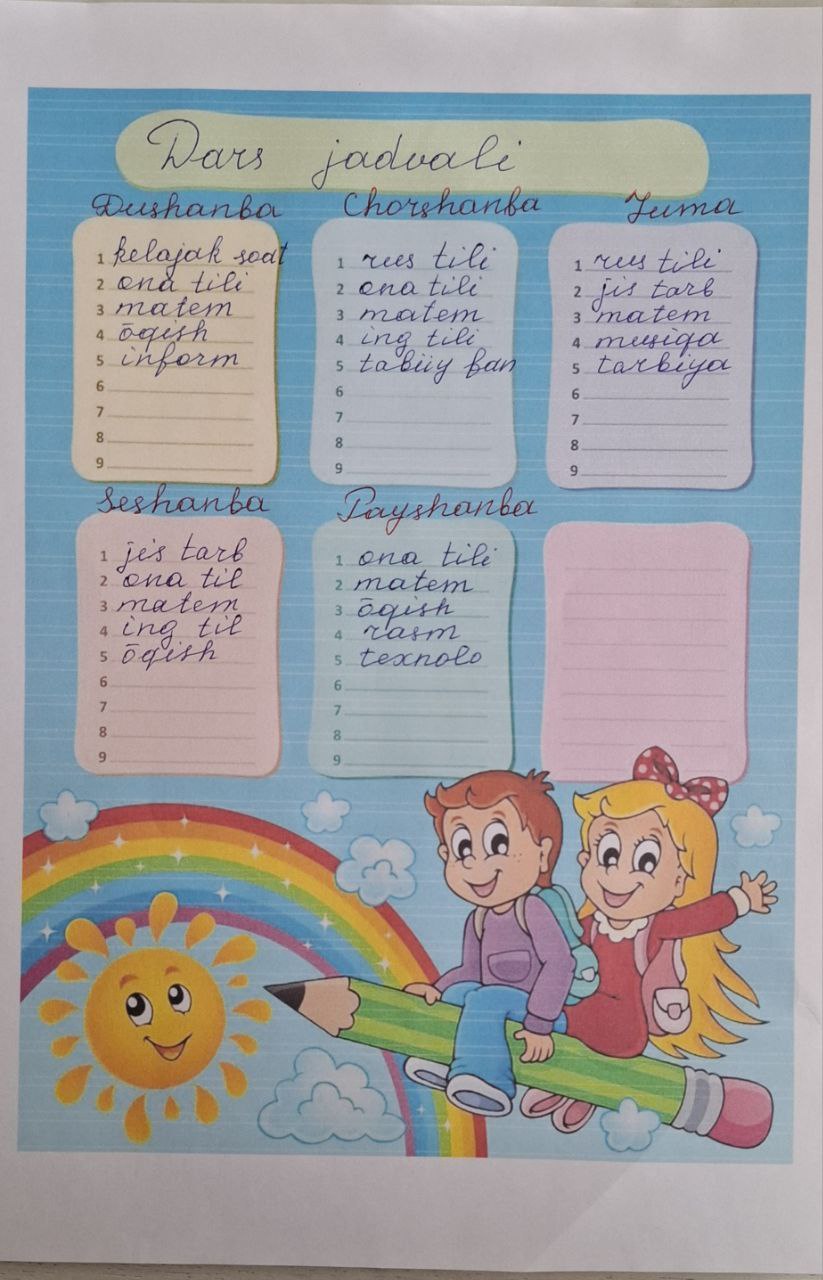 Dars jadvali
Dushanba
1 kelajak soat
2 ona tili
3 matem
4 ōqish
5 inform
6
7
8
9
Chorshanba
1 rus tili
2 ona tili
3 matem
4 ing tili
5 tabiiy fan
6
7
8
9
Juma
1 rus tili
2 jis tarb
3 matem
4 musiqa
5 tarbiya
6
7
8
9
Seshanba
1 jis tarb
2 ona til
3 matem
4 ing til
5 ōqish
6
7
8
9
Payshanba
1 ona tili
2 matem
3 ōqish
4 rasm
5 texnolo
6
7
8
9